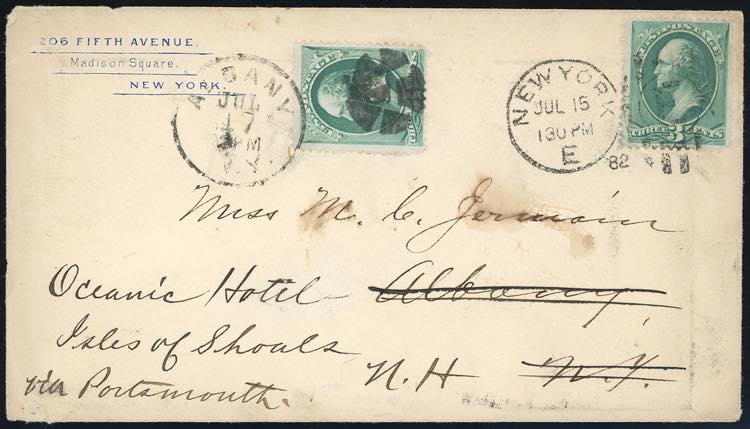 206 FIFTH AVENUE,
Madison Square.
NEW YORK.
ALBANY
JUL
17
PM
N.Y.
NEW YORK
JUL 15
130 PM
E
82
U.S. POSTAGE
THREE 3 CENTS
Miss M. C. Jermain
Oceanic Hotel Albany,
Isles of Shoals
N.H N.Y.
via Portsmouth.